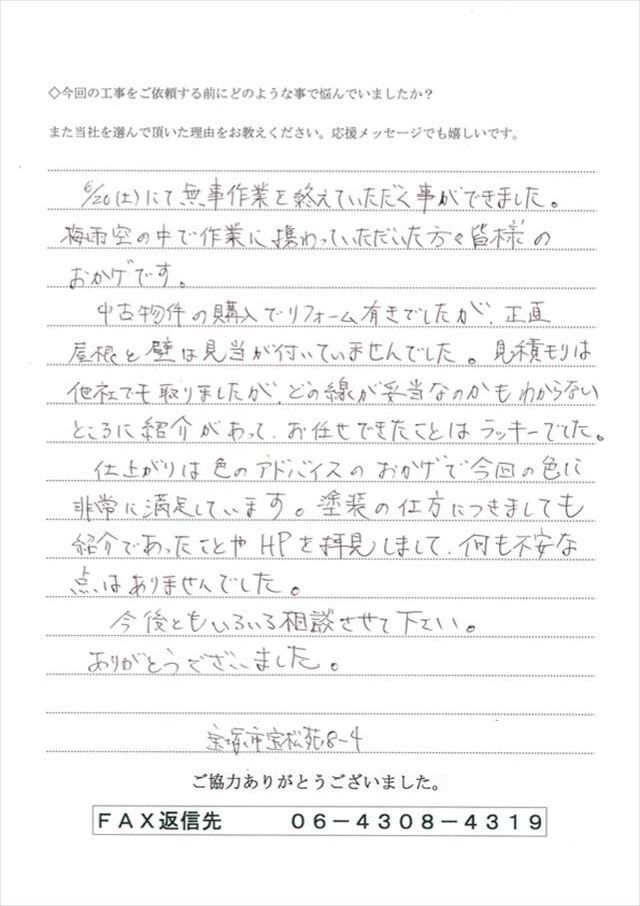 ◇今回の工事をご依頼する前にどのような事で悩んでいましたか？
また当社を選んで頂いた理由をお教えください。応援メッセージでも嬉しいです。
6/20(土)にて無事作業を終えていただく事ができました。
梅雨空の中で作業に携わっていただいた方々皆様の
おかげです。
中古物件の購入でリフォーム有きでしたが、正直
屋根と壁は見当が付いていませんでした。見積モリは
他社でも取りましたが、どの線が妥当なのかもわからない
ところに紹介があって、お任せできたことはラッキーでした。
仕上がりは色のアドバイスのおかげで今回の色に
非常に満足しています。塗装の仕方につきましても
紹介であったことやHPを拝見しまして、何も不安な
点はありませんでした。
今後ともいろいろ相談させて下さい。
ありがとうございました。
宝塚市宝松苑8-4
ご協力ありがとうございました。
FAX返信先　06－4308－4319